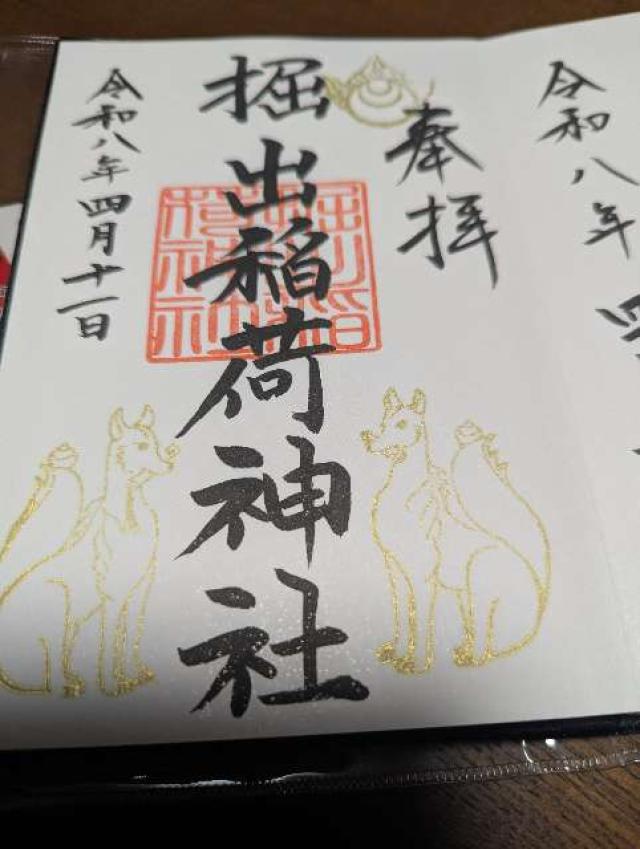 令和八年
奉拝
掘出稲荷神社
令和八年四月十一日
掘出稲荷神社